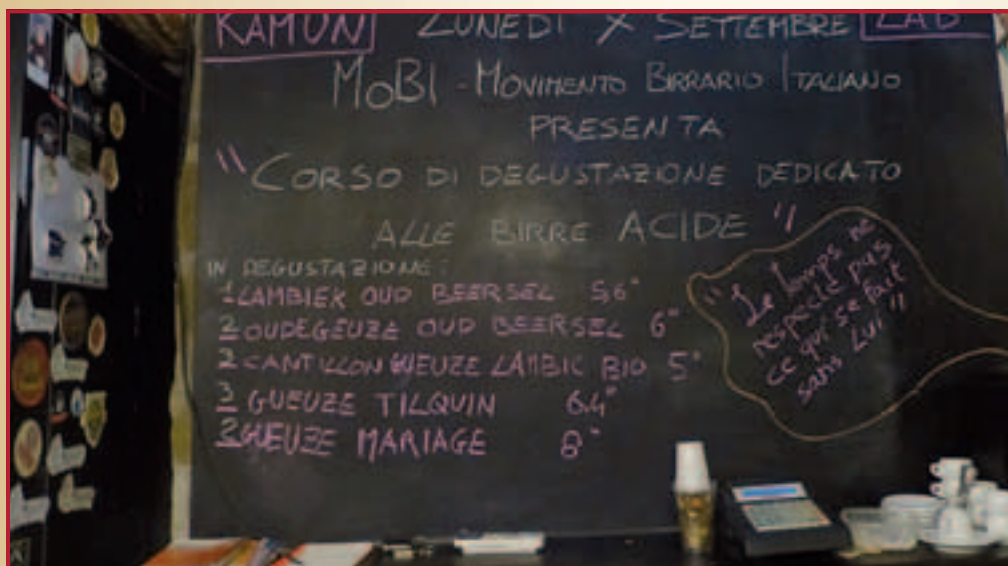 KAMUN LUNEDI X SETTEMBRE LAB
MoBI - MOVIMENTO BIRRARIO ITALIANO
PRESENTA
"CORSO DI DEGUSTAZIONE DEDICATO
ALLE BIRRE ACIDE"
IN DEGUSTAZIONE:
1 LAMBIEK OUD BEERSEL 5,6°
2 OUDEGEUZE OUD BEERSEL 6°
2 CANTILLON GUEUZE LAMBIC BIO 5°
3 GUEUZE TILQUIN 6.4°
GUEUZE MARIAGE 8°
"Le temps ne
respecte pas
ce qui se fait
sans Lui"